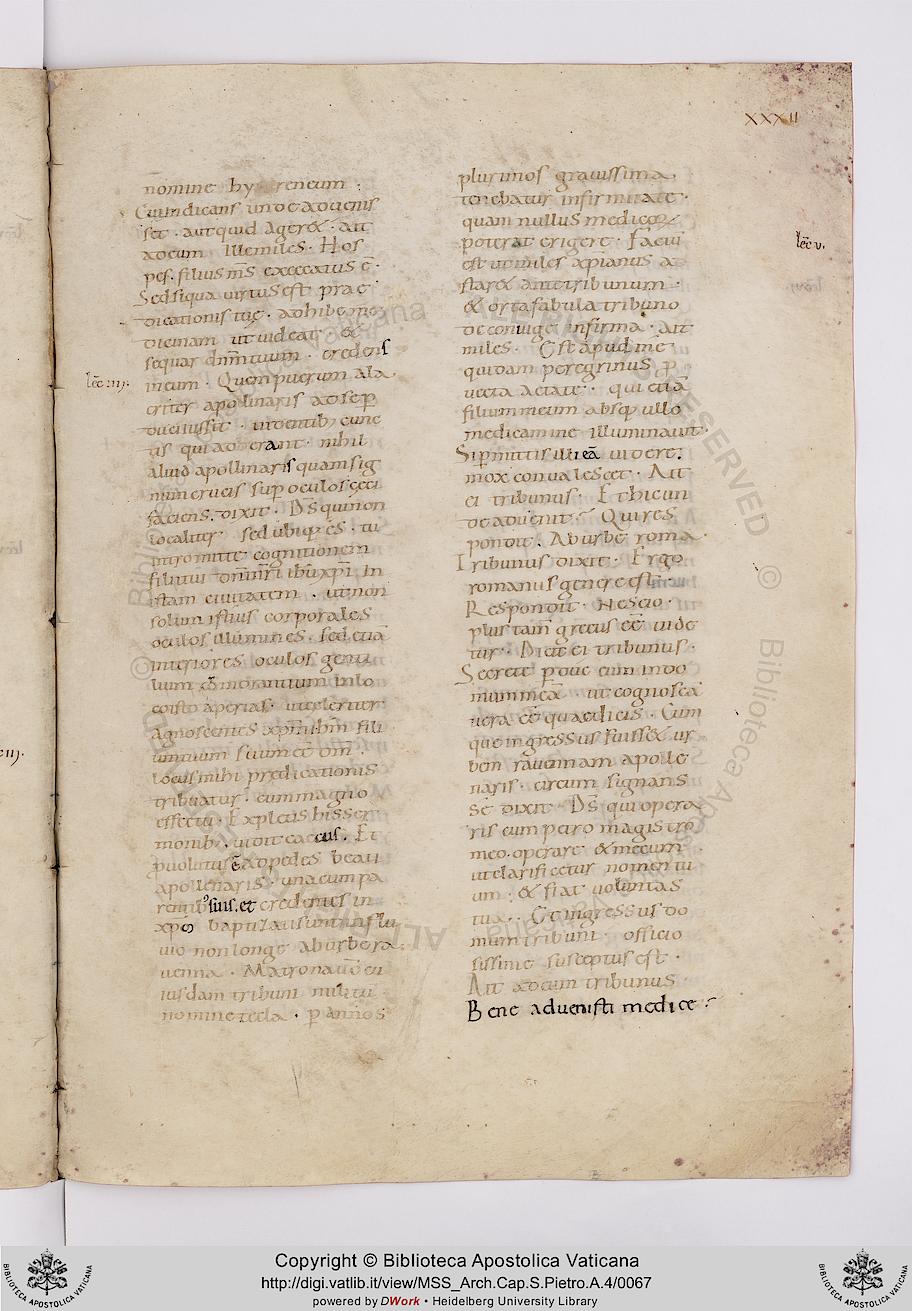 XXXII
nomine hyreneum .
Cui indicans unde adveniſ
ſet . aut quid ageret . ait
ad eum ille mileſ . Hoſ
peſ . filius mſ excecatus ē .
Sed ſi qua virtus eſt prae
dicationiſ tuę . adhibe me
dicinam ut videat . &
ſequar dnm tuum . credenſ
in eum . Quem puerum ala
criter apollinariſ ad ſe p
duci iuſſit . videntib; cunc
tiſ qui aderant . nihil
aliud apollinariſ quam ſig
num crucis ſup oculoſ ceci
faciens . dixit . Dſ qui non
localiter ſed ubiq; es . tu
intromitte cognitionem
filii tui dni nri ihu xpi in
iſtam civitatem . ut non
ſolum iſtius corporaleſ
oculoſ illumines . ſed etiā
interiores oculoſ genti
lium
aperiaſ . ut celeriter
agnoscentes xpm ihm fili
um tuum ſuum ee dm
locus mihi prędicationis
tribuatur . cum magno
effectu . Expletis his ser
monib; vidit caecus . Et
pvolutus ē ad pedes beati
apollenaris . una cum pa
rentib; ſuis . et credentes in
xpo baptizati sunt in flu
vio non longe ab urbe ra
venna . Matrona v cu
iuſdam tribuni militū
nomine tecla . p annos
lec iiij.
plurimoſ gravissima
tenebatur infirmitate .
quam nullus medicoꝝ
poterat erigere . Factū
eſt ut mileſ xpianus a
ſtaret ante tribunum .
& orta fabula tribuno
de coniuge infirma . ait
mileſ . Eſt apud me
quidam peregrinuſ p
vecta aetate . qui etiā
filium meum absq; ullo
medicamine illuminavit .
Si pmittiſ illi eā videre .
mox convaleſcet . Ait
ei tribunuſ . Et hic un
de advenit ? Qui reſ
pondit . Ab urbe roma .
Tribunus dixit . Ergo
romanuſ genere eſt .
Respondit . Neſcio .
plus tam grecus eē vide
tur . Dicit ei tribunuſ .
Secrete pduc eum in do
mum meā . ut cognoſcā
vera eē quae dicis . Cum
que ingressus fuisset ur
bem ravennam apolle
nariſ . circum ſignans
se dixit . Dſ qui opera
ris cum petro magistro
meo . operare & mecum .
ut clarificetur nomen tu
um . & fiat voluntas
tua . Et ingressus do
mum tribuni . officio
sissime susceptus eſt .
Ait ad eum tribunus
Bene advenisti medice .
lec v.
Copyright © Biblioteca Apostolica Vaticana
http://digi.vatlib.it/view/MSS_Arch.Cap.S.Pietro.A.4/0067
powered by DWork • Heidelberg University Library
BIBLIOTECA APOSTOLICA VATICANA
BIBLIOTECA APOSTOLICA VATICANA